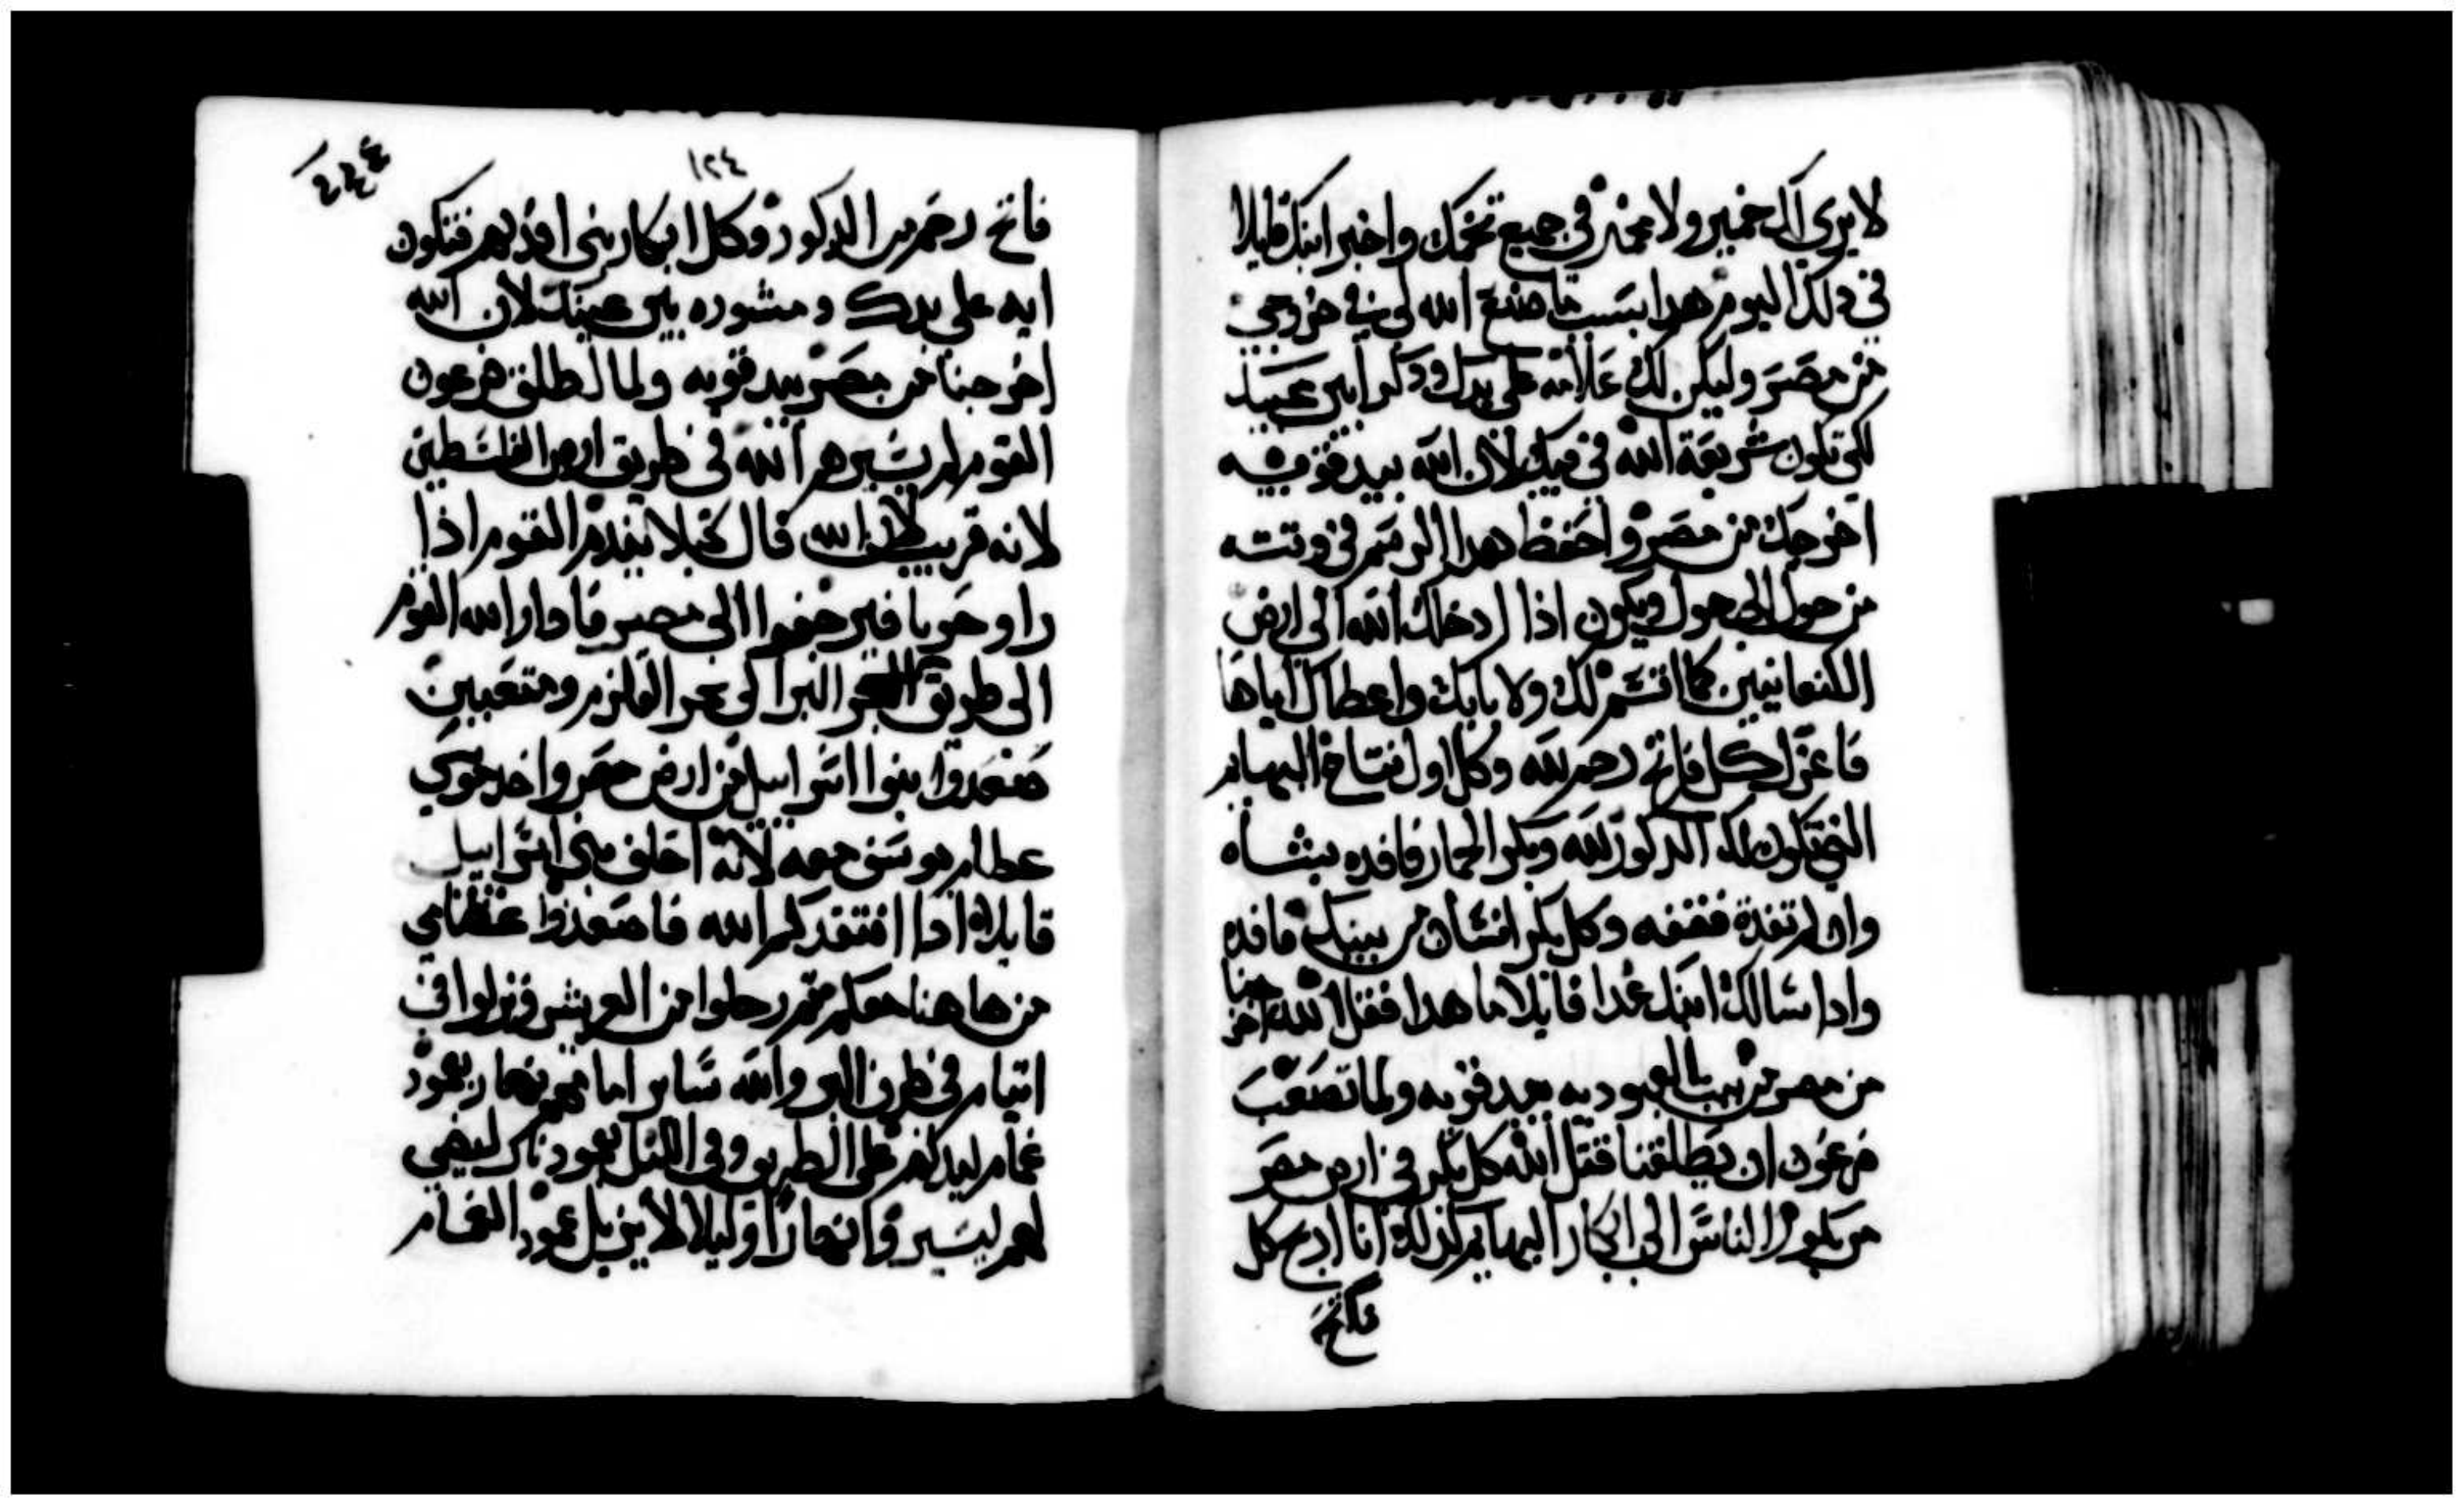 لا يري لك خمير ولا مختمر في جميع تخمك واخبر ابنك قايلا
في دلك اليوم هدا بسبب ما صنع الله لي في خروجي
من مصر وليكن لك علامه على يدك ودكرا بين عينيك
لكي تكون شريعة الله في فيك لان الله بيد قويه
اخرجك من مصر واحفظ هدا الرسم في وقته
من حول الى حول ويكون اذا ادخلك الله الى ارض
الكنعانيين كما اقسم لك ولابايك واعطاك اياها
فاعزل كل فاتح رحم لله وكل اول فتاح البهايم
التي تكون لك الدكور لله وبكر الحمار فافده بشاه
وان لم تفده ففقفه وكل بكر انسان من بنيك فافده
وادا سالك ابنك غدا قايلا ما هدا فقل الله اخرجنا
من مصر من بيت العبوديه بيد قويه ولما تصعب
فرعون ان يطلقنا فقتل الله كل بكر في ارض مصر
من بكور الناس الى ابكار البهايم لدلك انا ادبح كل
فاتح
١٢٤
فاتح رحم من الدكور وكل ابكار بني افديهم فتكون
ايه على يدك ومشوره بين عينيك لان الله
اخرجنا من مصر بيد قويه ولما اطلق فرعون
القوم لم يسيرهم الله في طريق ارض الفلسطين
لانه قريب لان الله قال كيلا يندم القوم اذا
راو حربا فيرجعوا الى مصر فادار الله القوم
الى طريق البر الى بحر القلزم ومتعبيين
صعدوا بنوا اسراييل من ارض مصر واخد موسي
عظام يوسف معه لانه احلف بني اسراييل
قايلا اذا افتقدكم الله فاصعدوا عظامي
من هاهنا معكم ثم رحلوا من العريش ونزلوا في
اتيام في طرف البر والله ساير امامهم نهارا بعمود
غمام ليدلهم على الطريق وفي الليل بعمود نار ليضي
لهم ليسيروا نهارا وليلا لا يزيل عمود الغمام